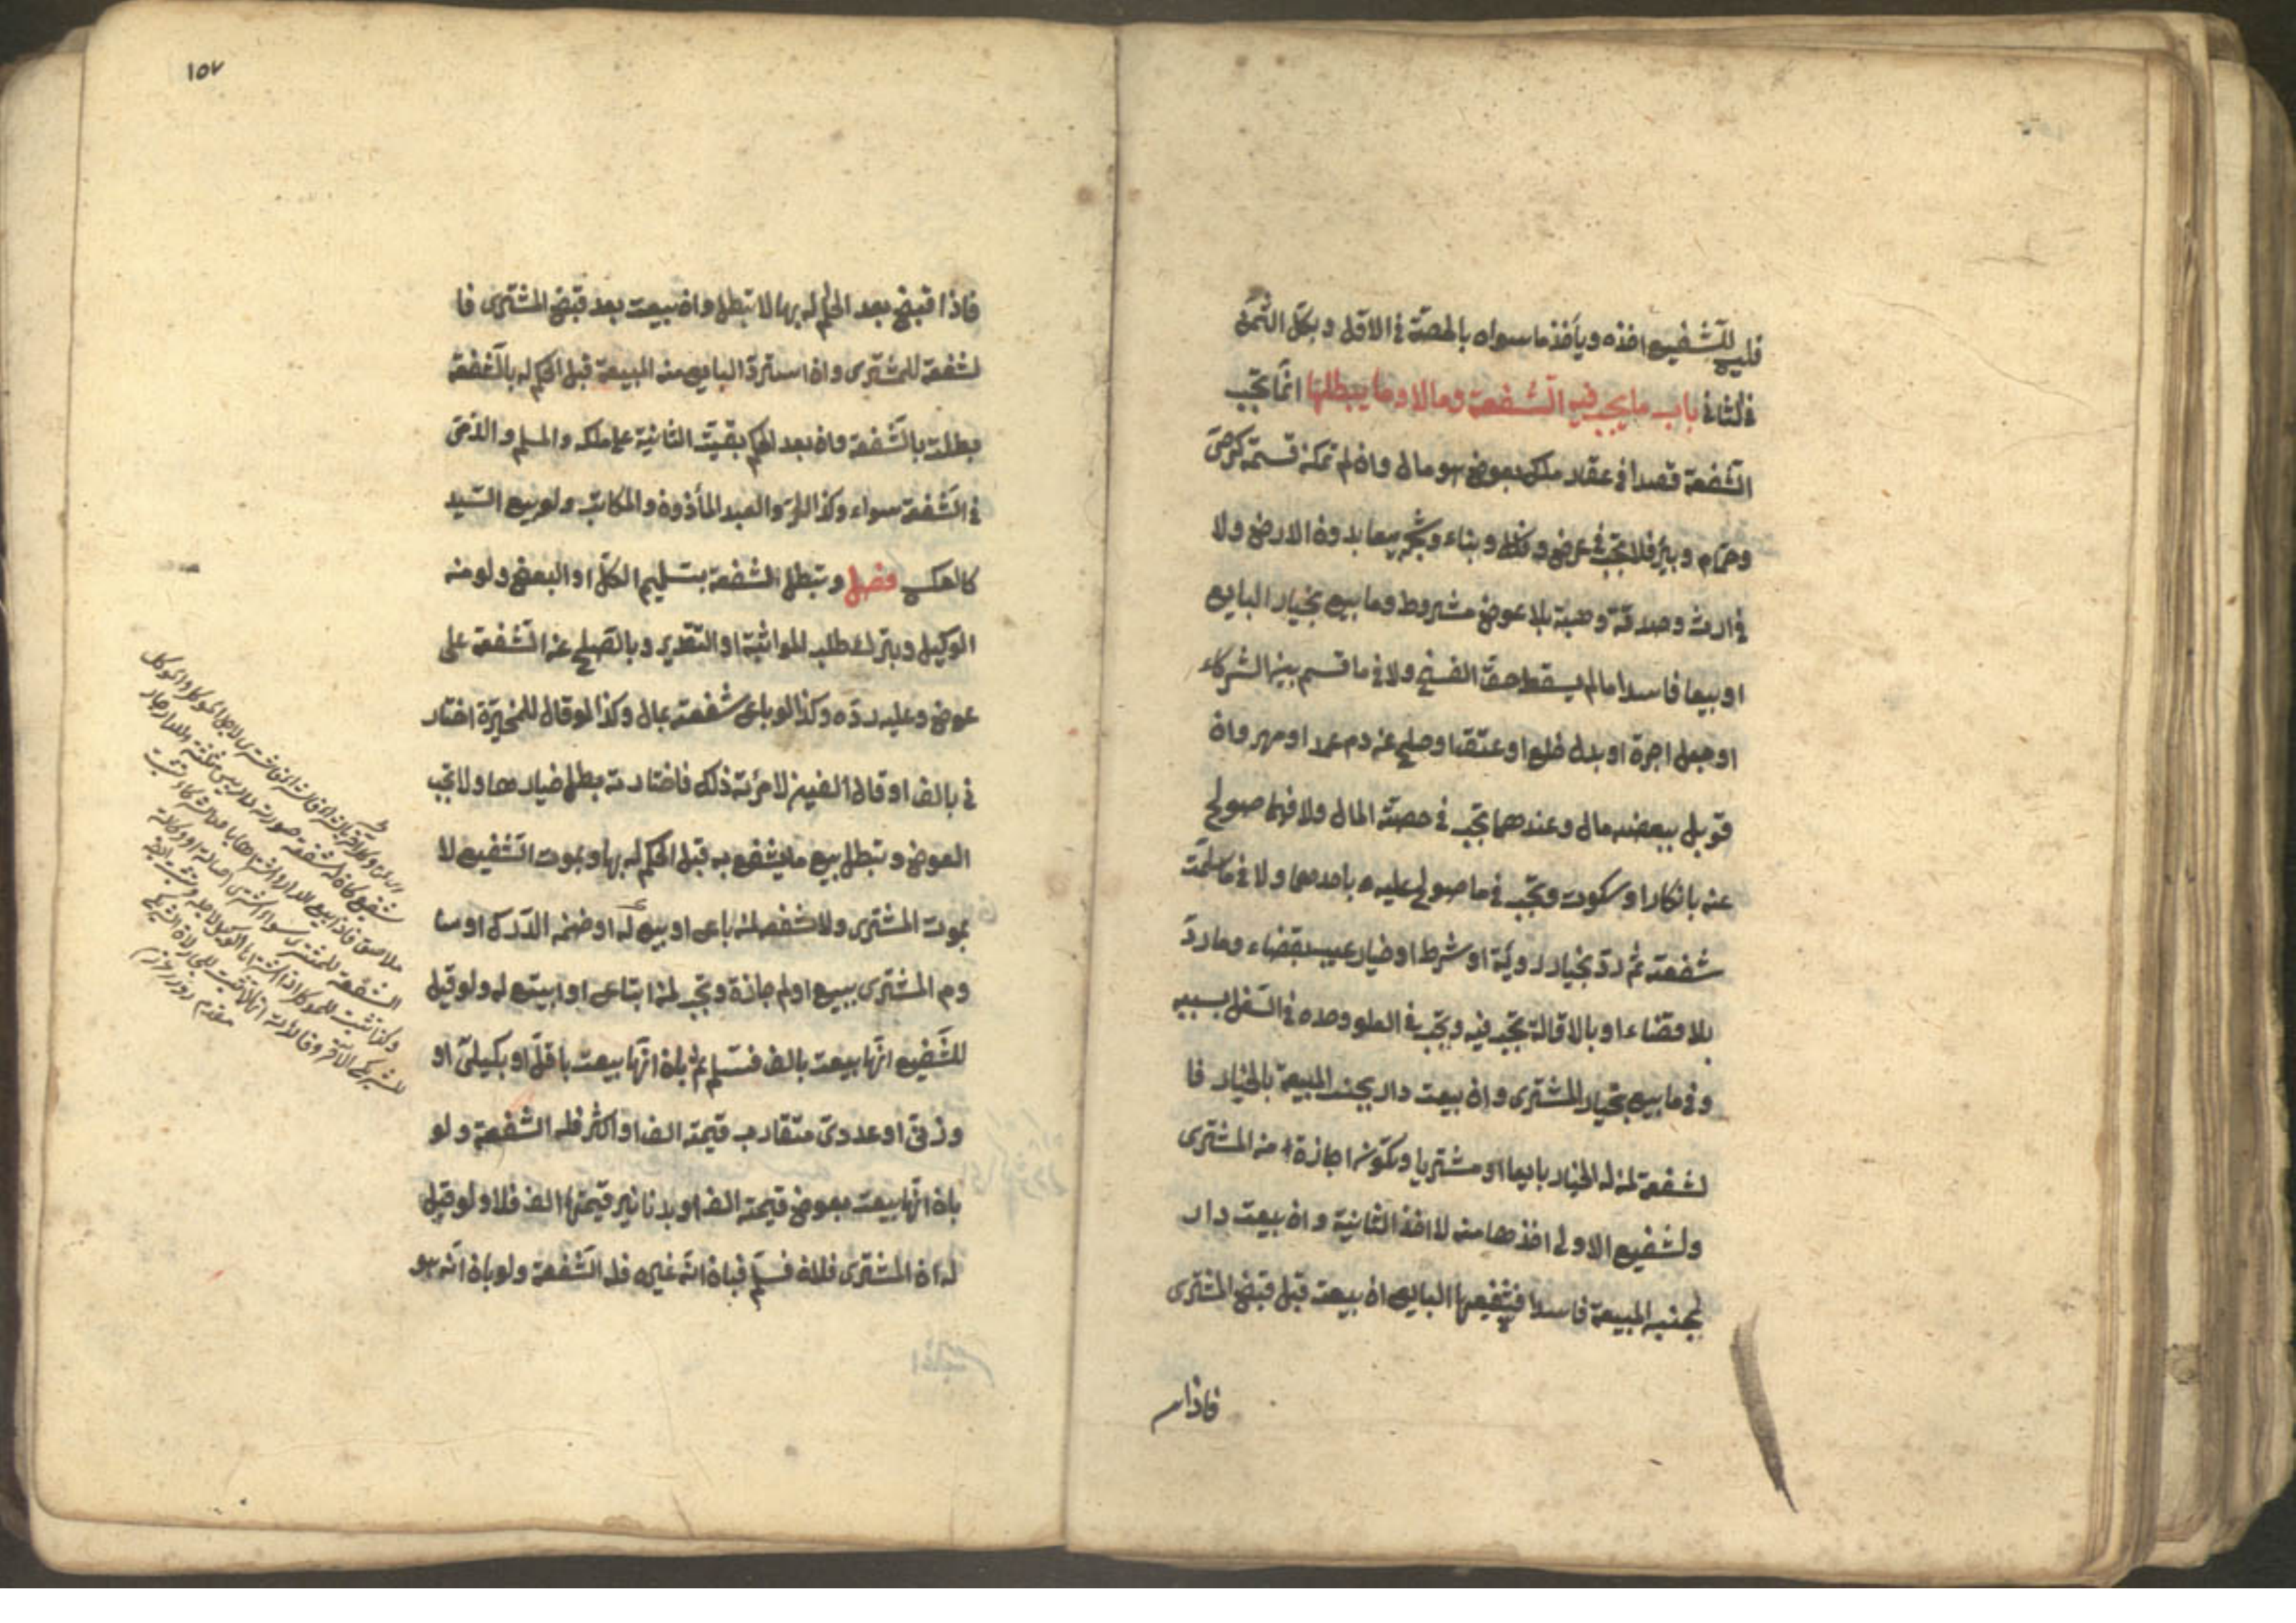 فليس للشفيع اخذه ويأخذ ما سواه بالحصة في الاول وبكل الثمن
في الثاني باب ما يجب فيه الشفعة وما لا وما يبطلها انما تجب
الشفعة قصدا في عقار ملك بعوض هو مال وان لم تمكن قسمته كرحى
وحمام وبير فلا تجب في عرض وفلك وبناء وشجر بيعا بدون الارض ولا
في ارث وصدقة وهبة بلا عوض مشروط وما بيع بخيار البايع
او بيعا فاسدا ما لم يسقط حق الفسخ ولا في ما قسم بين الشركاء
او جعل اجرة او بدل خلع او عتق او صلح عن دم عمد او مهر وان
قوبل ببعضه مال وعندهما تجب في حصة المال ولا فيما صولح
عنه بانكار او سكوت وتجب في ما صولح عليه باحدهما ولا في ما سلمت
شفعته ثم رد بخيار روية او شرط او خيار عيب بقضاء وما رد
بلا قضاء او بالاقالة تجب فيه وتجب في العلو وحده في السفل بسببه
وفي ما بيع بخيار المشتري وان بيعت دار بجنب المبيعة بالخيار فا
لشفعة لمن له الخيار بايعا او مشتريا وتكون اجازة من المشتري
ولشفيع الاولى اخذها منه لا اخذ الثانية وان بيعت دار
بجنب المبيعة فاسدا فشفيعها البايع ان بيعت قبل قبض المشتري
فاذا
١٥٧
فاذا قبض بعد الحكم له بها لا تبطل وان بيعت بعد قبض المشتري فا
لشفعة للمشتري وان استرد البايع منه المبيعة قبل الحكم له بالشفعة
بطلت بالشفعة وان بعد الحكم بقيت الثانية على ملكه والمسلم والذمي
في الشفعة سواء وكذا الحر والعبد المأذون والمكاتب ولو بيع السيد
كالعكس فصل وتبطل الشفعة بتسليم الكل او البعض ولو من
الوكيل وبترك طلب المواثبة او التقرير وبالصلح عن الشفعة على
عوض وعليه رده وكذا لو باع شفعته بمال وكذا لو قال للمخيرة اختار
ني بالف او قال العنين لامرأته ذلك فاختارته بطل خيارها ولا تجب
العوض وتبطل ببيع ما يشفع به قبل الحكم له بها وبموت الشفيع لا
بموت المشتري ولا شفعة لمن باع او بيع له او ضمن الدرك او سا
وم المشتري ببيع او لم جازة وتجب لمن ابتاع او ابيتع له ولو قيل
للشفيع انها بيعت بالف فسلم ثم بان انها بيعت باقل او بكيلي او
وزني او عددي متقارب قيمته الف او اكثر فله الشفعة ولو
بان انها بيعت بعوض قيمته الف او بدنانير قيمتها الف فلا ولو قيل
له ان المشتري فلان فسلم فبان انه غيره فله الشفعة ولو بان انه هو